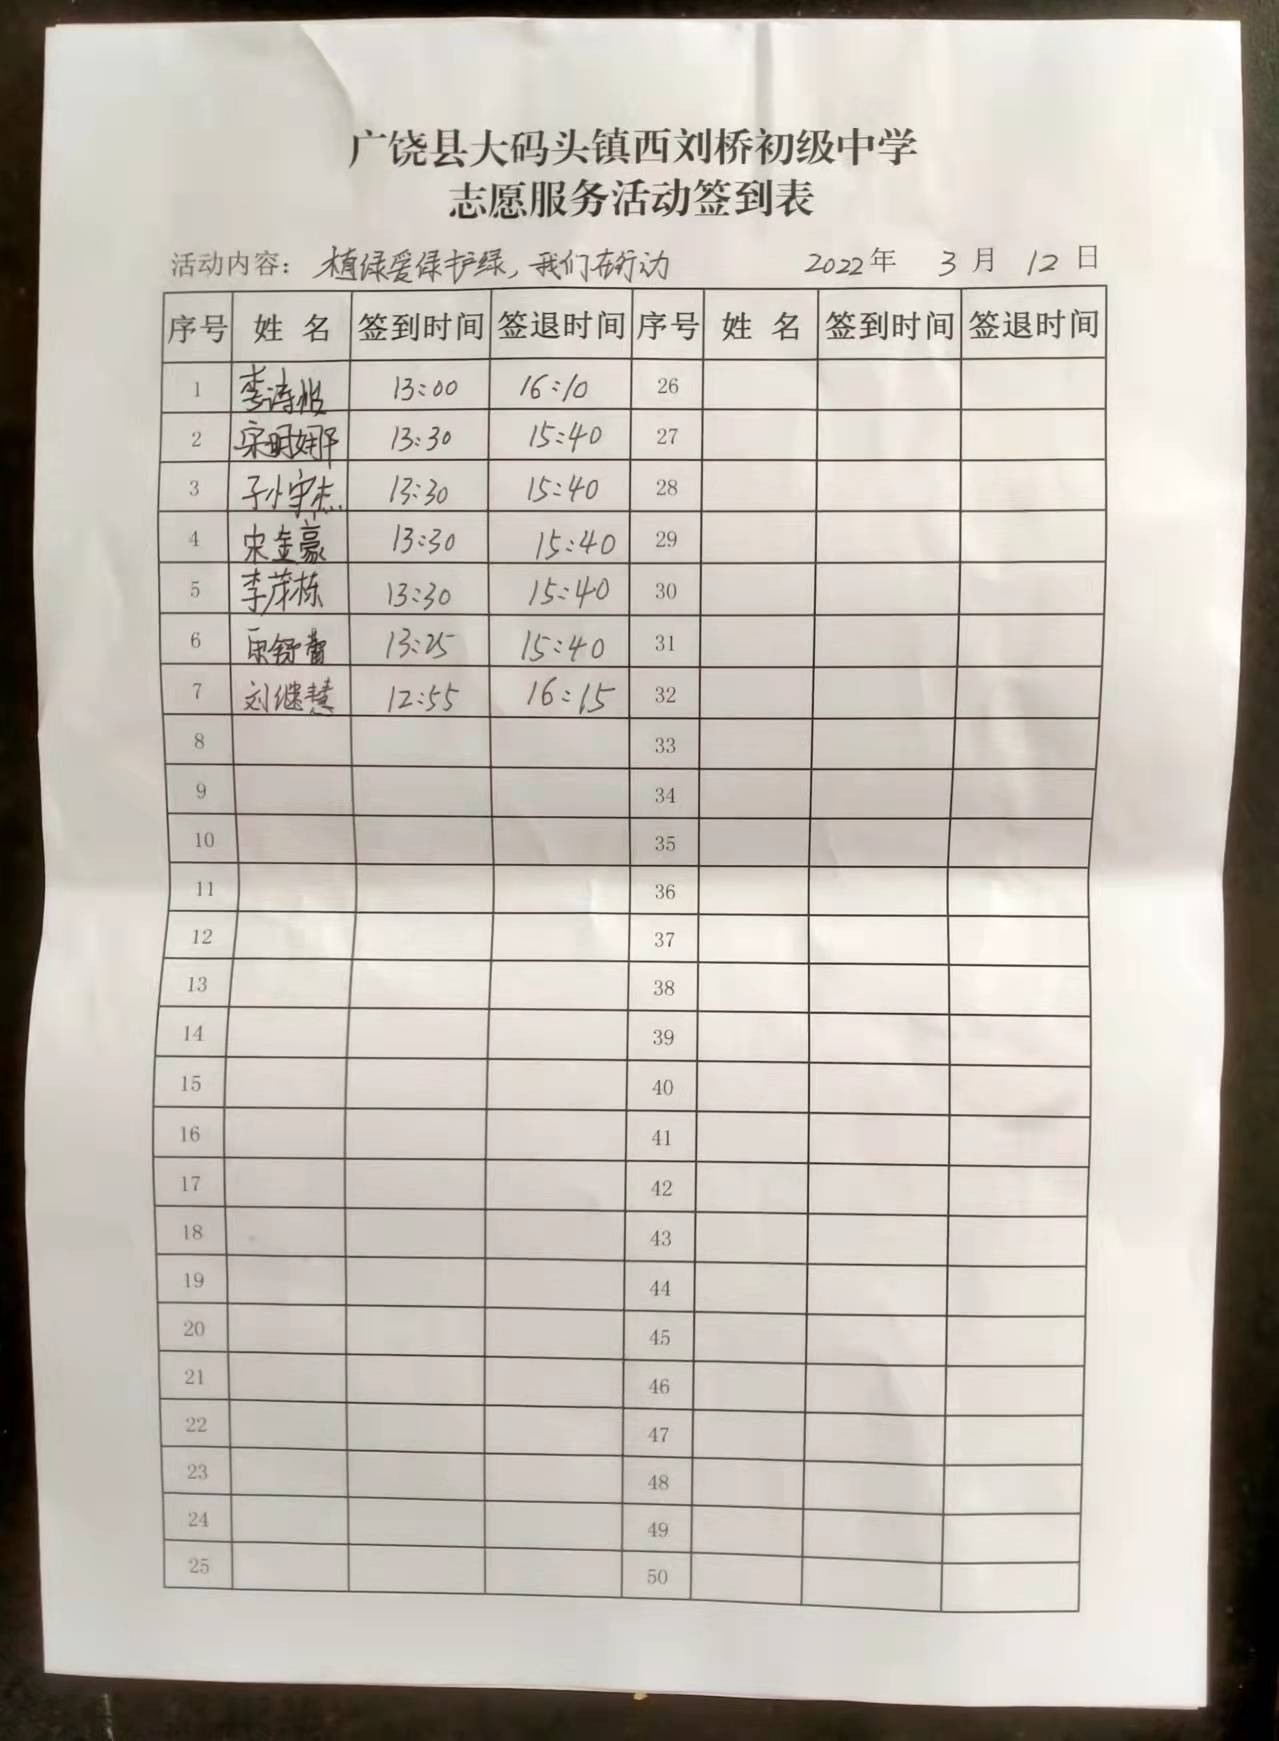 广饶县大码头镇西刘桥初级中学
志愿服务活动签到表
活动内容：植绿爱绿护绿，我们在行动 2022年 3月 12日
序号 姓名 签到时间 签退时间 序号 姓名 签到时间 签退时间
1 李诗怡 13:00 16:10 26
2 宋明娜 13:30 15:40 27
3 孙守杰 13:30 15:40 28
4 宋金豪 13:30 15:40 29
5 李茂栋 13:30 15:40 30
6 13:25 15:40 31
7 刘继慧 12:55 16:15 32
8 33
9 34
10 35
11 36
12 37
13 38
14 39
15 40
16 41
17 42
18 43
19 44
20 45
21 46
22 47
23 48
24 49
25 50